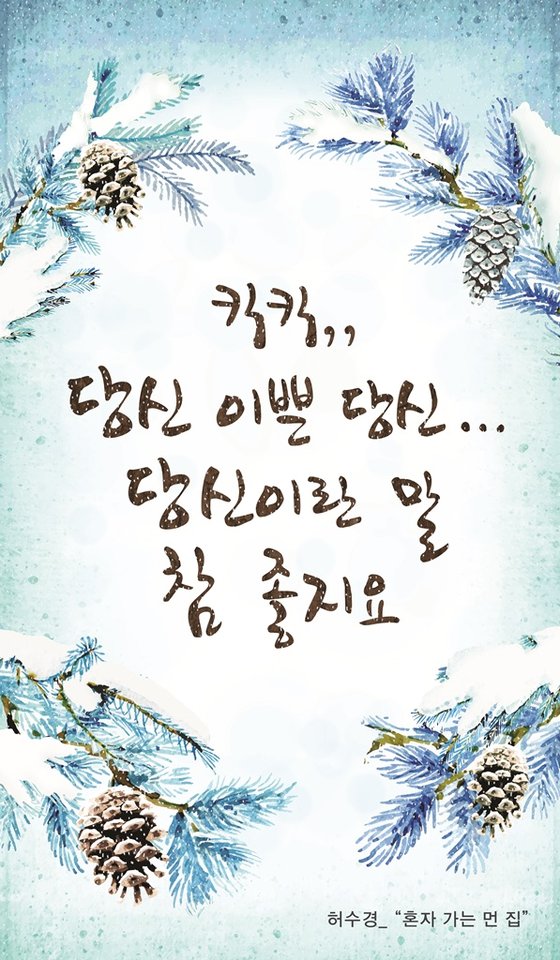 킥킥,,
당신 이쁜 당신...
당신이란 말
참 좋지요
허수경_ “혼자 가는 먼 집”